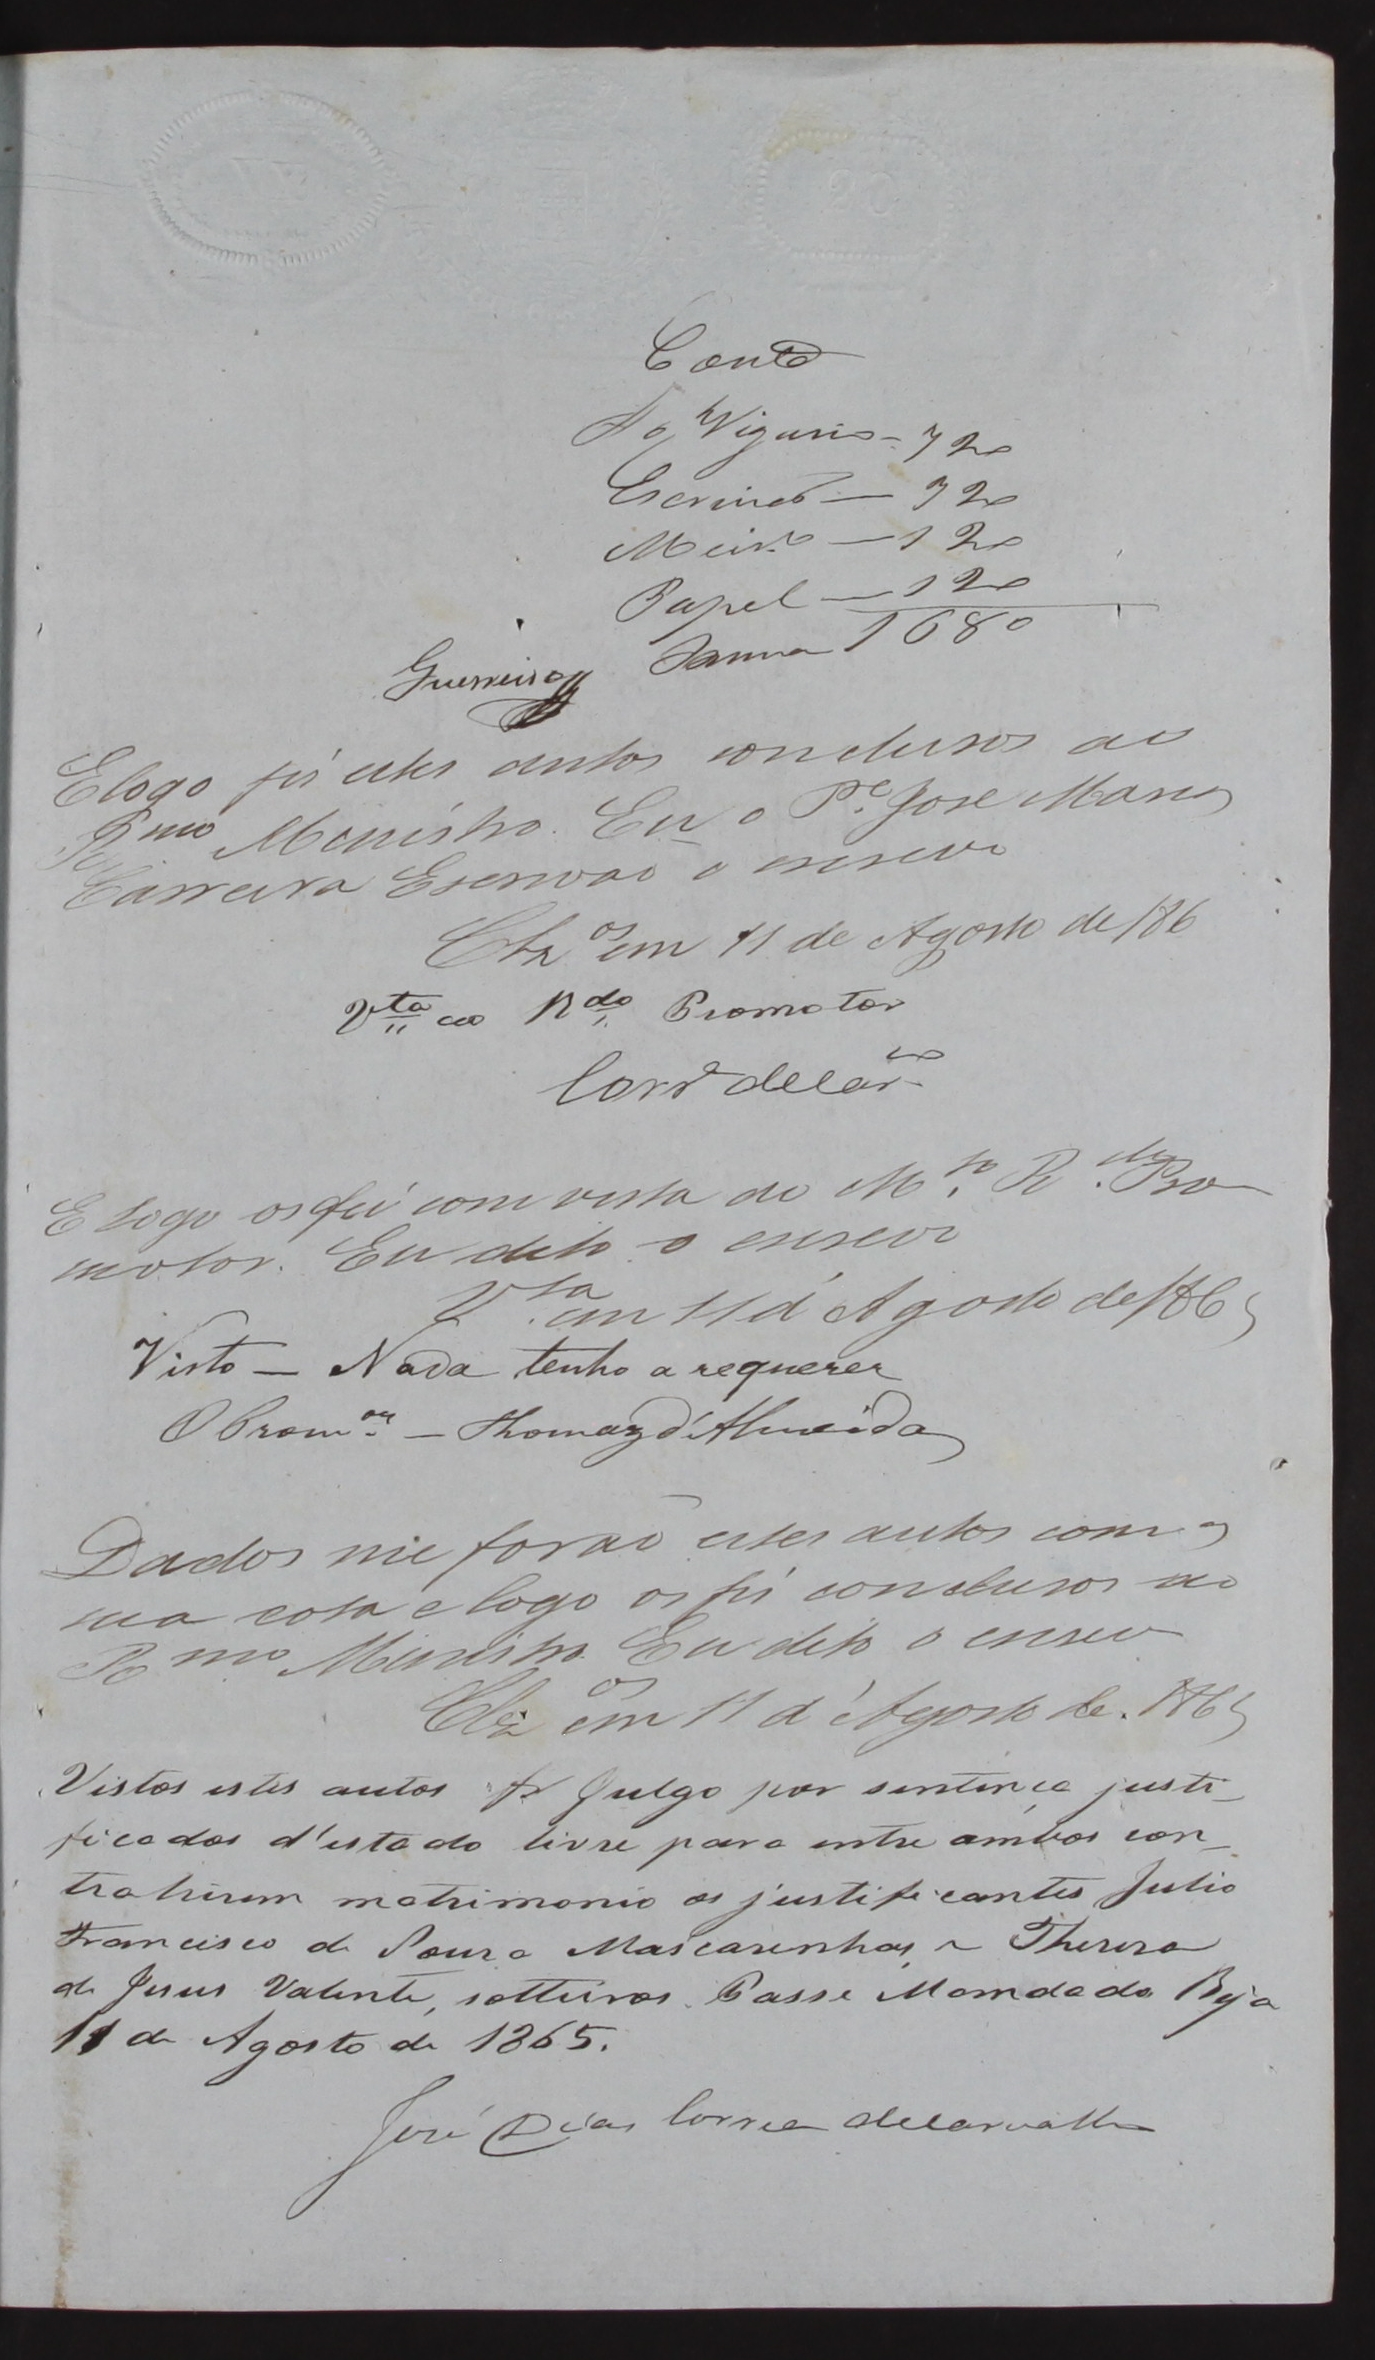 20
Conta
Ao Vigario - 720
Escrivaõ — 720
Meirº — 120
Papel — 120
Somma 1680
Guerreiro
E logo fis estes autos conclusos ao
Rmo Menistro. Eu o Pe. Jose Maria
Carreira Escrivaõ o escrevi
Clzos em 11 de Agosto de 186
Vta ao Rdo Promotor
Corrª de Carvo
E logo os fis com vista ao Mto. Rdo. Pro
motor. Eu dito o escrevi
Vta. em 11 d'Agosto de 1865
Visto — Nada tenho a requerer
O Promor. — Thomaz d'Almeida
Dados me foraõ estes autos com a
sua cota e logo os fis conclusos ao
Rmo Menistro. Eu dito o escrevi
Clzos em 11 d'Agosto de. 1865
Vistos estes autos Julgo por sentença justi_
ficados d'estado livre para entre ambos con_
trahirem matrimonio os justificantes Julio
Francisco de Souza Mascarenhas, e Thereza
de Jesus Valente, solteiros. Passe Mandado Beja
11 de Agosto de 1865.
José Dias Correa de Carvalho